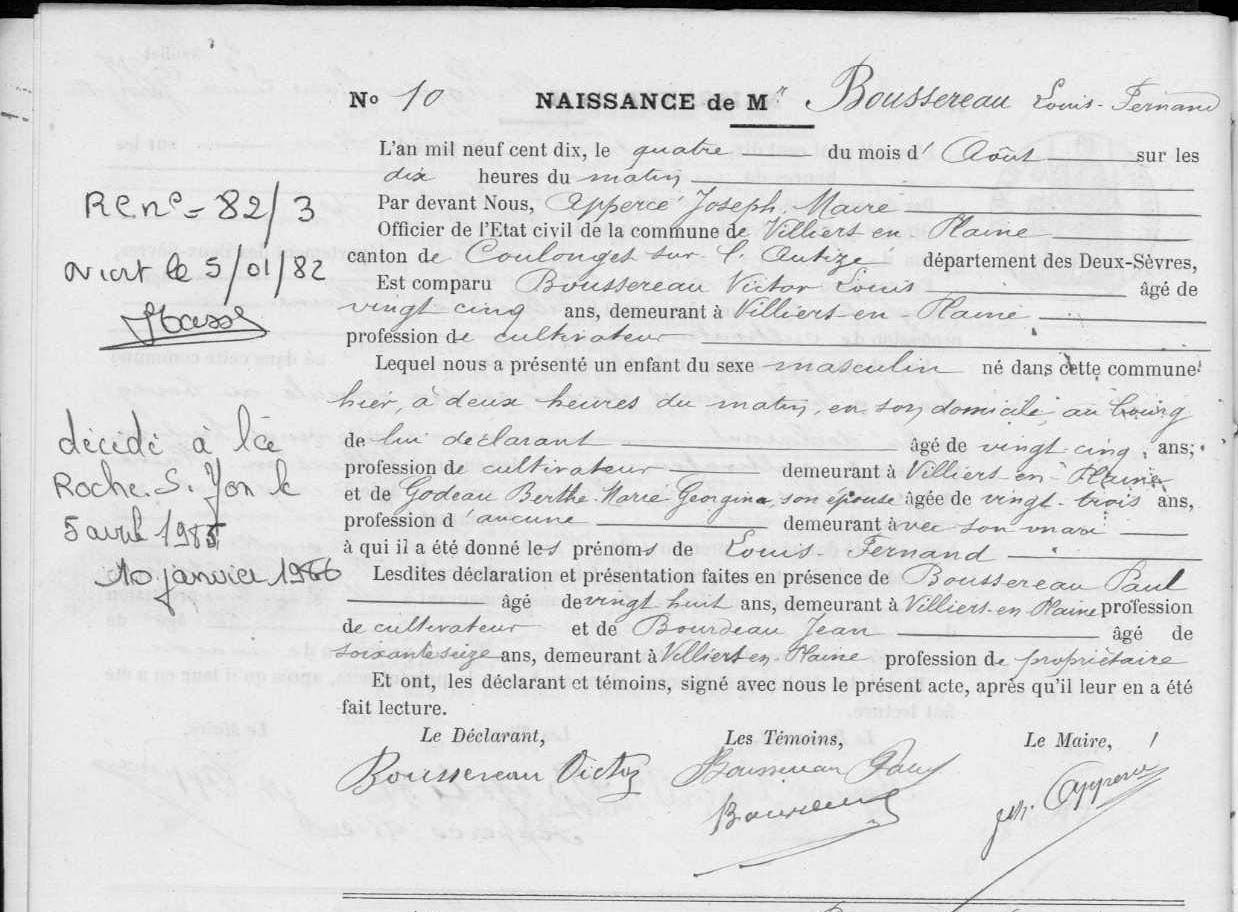 No 10 NAISSANCE de Mr Boussereau Louis-Fernand
L'an mil neuf cent dix, le quatre du mois d' Août sur les
dix heures du matin
Par devant Nous, Appercé Joseph. Maire
Officier de l'Etat civil de la commune de Villiers-en-Plaine
canton de Coulonges-sur-l'Autize département des Deux-Sèvres,
Est comparu Boussereau Victor Louis âgé de
vingt cinq ans, demeurant à Villiers-en-Plaine
profession de cultivateur
Lequel nous a présenté un enfant du sexe masculin né dans cette commune
hier, à deux heures du matin, en son domicile, au bourg
de lui déclarant âgé de vingt cinq, ans;
profession de cultivateur demeurant à Villiers-en-Plaine
et de Godeau Berthe-Marie Georgina, son épouse âgée de vingt-trois ans,
profession d'aucune demeurant avec son mari
à qui il a été donné les prénoms de Louis-Fernand
Lesdites déclaration et présentation faites en présence de Boussereau Paul
âgé de vingt huit ans, demeurant à Villiers-en-Plaine profession
de cultivateur et de Bourdeau Jean âgé de
soixante seize ans, demeurant à Villiers-en-Plaine profession de propriétaire
Et ont, les déclarant et témoins, signé avec nous le présent acte, après qu'il leur en a été
fait lecture.
Le Déclarant, Les Témoins, Le Maire,
Boussereau Victor Boussereau Paul
Jph. Apperce
RC no- 82/3
Niort le 5/01/82
décédé à La
Roche. S. Yon le
5 avril 1985
10 janvier 1986